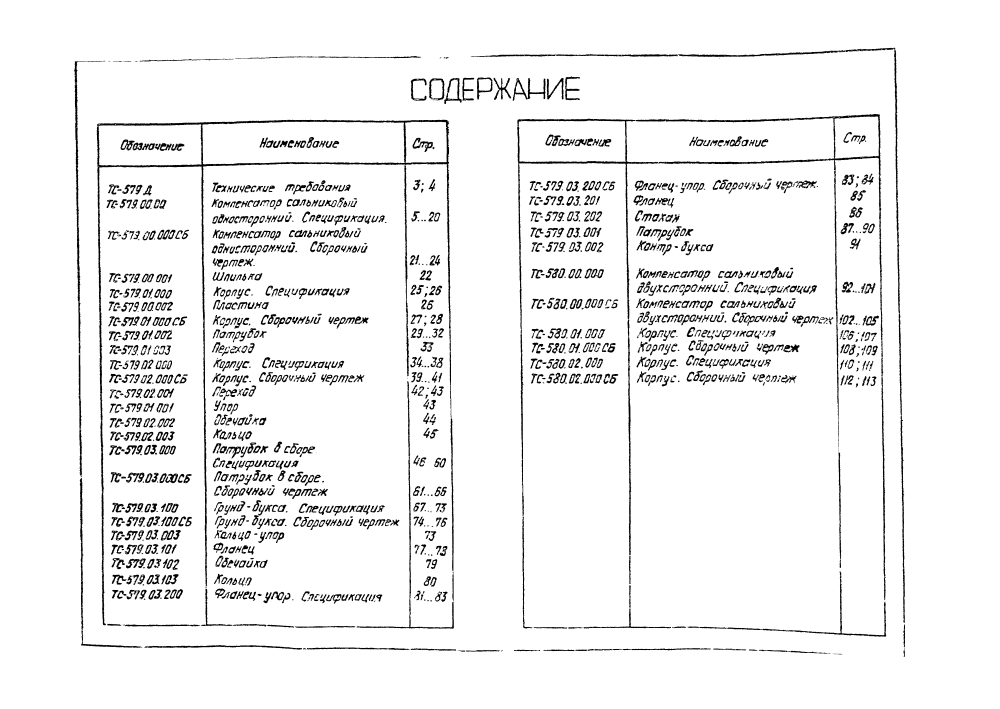 СОДЕРЖАНИЕ
Обозначение Наименование Стр.
ТС-579 Д Технические требования 3; 4
ТС-579.00.00 Компенсатор сальниковый
односторонний. Спецификация. 5...20
ТС-579.00.000СБ Компенсатор сальниковый
односторонний. Сборочный
чертеж. 21...24
ТС-579.00.001 Шпилька 22
ТС-579.01.000 Корпус. Спецификация 25; 26
ТС-579.00.002 Пластина 26
ТС-579.01.000СБ Корпус. Сборочный чертеж 27; 28
ТС-579.01.002 Патрубок 29...32
ТС-579.01.003 Переход 33
ТС-579.02.000 Корпус. Спецификация 34...38
ТС-579.02.000СБ Корпус. Сборочный чертеж 39...41
ТС-579.02.001 Переход 42; 43
ТС-579.01.001 Упор 43
ТС-579.02.002 Обечайка 44
ТС-579.02.003 Кольцо 45
ТС-579.03.000 Патрубок в сборе
Спецификация 46 60
ТС-579.03.000СБ Патрубок в сборе.
Сборочный чертеж 61...66
ТС-579.03.100 Грунд-букса. Спецификация 67...73
ТС-579.03.100СБ Грунд-букса. Сборочный чертеж 74...76
ТС-579.03.003 Кольцо-упор 73
ТС-579.03.101 Фланец 77...78
ТС-579.03.102 Обечайка 79
ТС-579.03.103 Кольцо 80
ТС-579.03.200 Фланец-упор. Спецификация 81...83
Обозначение Наименование Стр.
ТС-579.03.200СБ Фланец-упор. Сборочный чертеж. 83; 84
ТС-579.03.201 Фланец 85
ТС-579.03.202 Стакан 86
ТС-579.03.001 Патрубок 87...90
ТС-579.03.002 Контр-букса 91
ТС-580.00.000 Компенсатор сальниковый
двухсторонний. Спецификация 92...101
ТС-580.00.000СБ Компенсатор сальниковый
двухсторонний. Сборочный чертеж 102...105
ТС-580.01.000 Корпус. Спецификация 106; 107
ТС-580.01.000СБ Корпус. Сборочный чертеж 108; 109
ТС-580.02.000 Корпус. Спецификация 110; 111
ТС-580.02.000СБ Корпус. Сборочный чертеж 112; 113